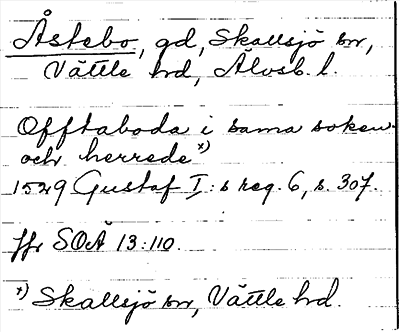 Åstebo, gd, Skallsjö sn,
Vättle hd, Älvsb. l.
Offtaboda i sama soken
och herrede x)
1529 Gustaf I:s reg. 6, s. 307.
Jfr SOÄ 13:110.
x) Skallsjö sn, Vättle hd.